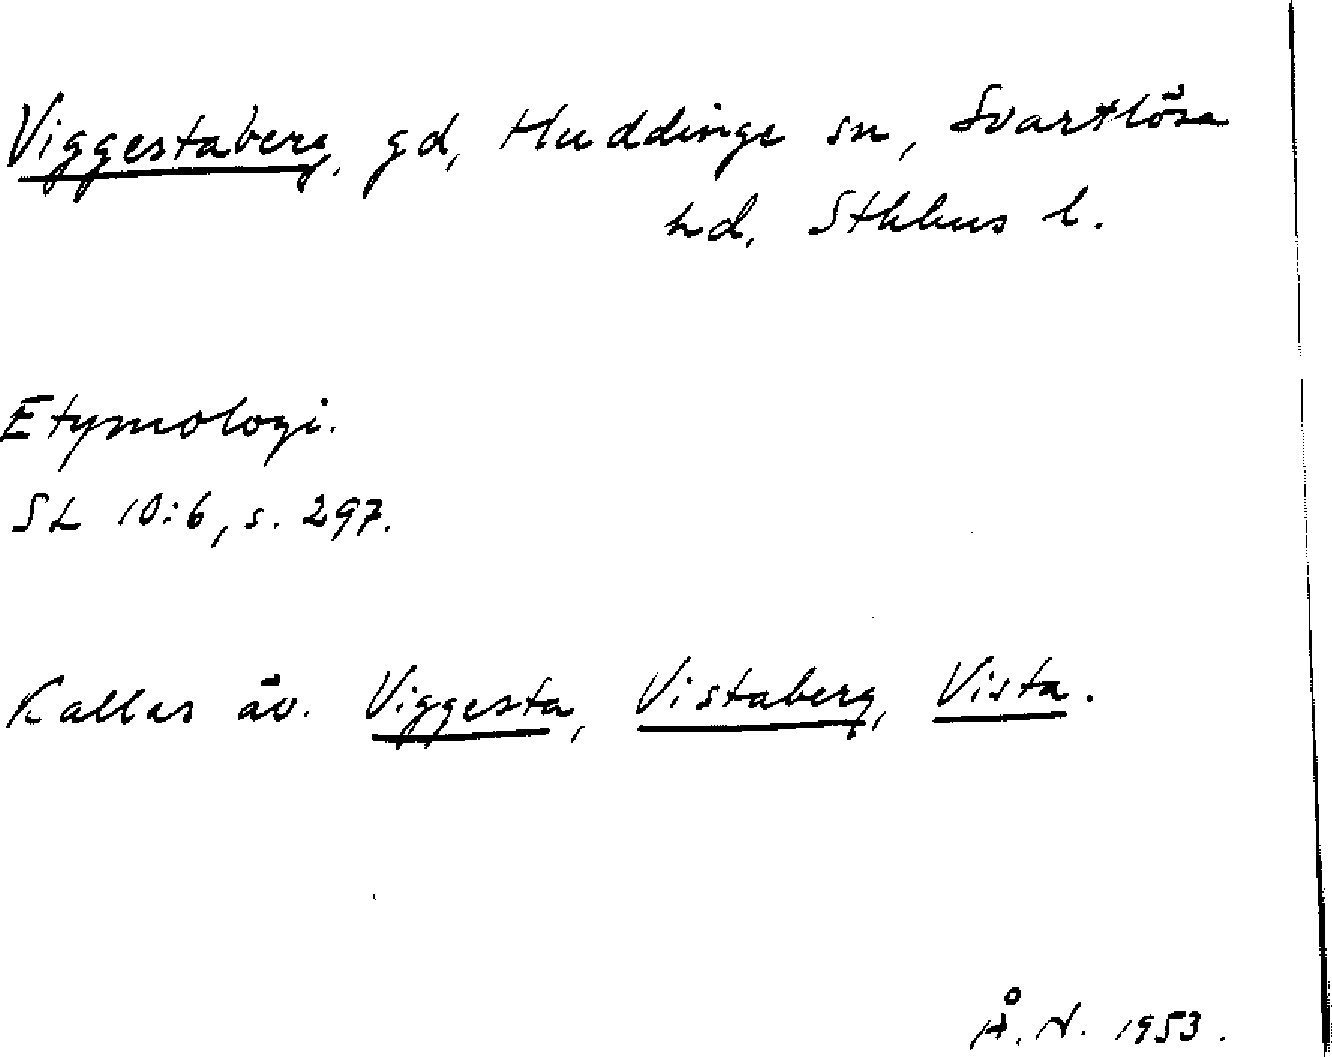 Viggestaberg, gd, Huddinge sn, Svartlösa
hd, Sthlms l.
Etymologi.
SL 10:6, s. 297.
Kallas äv. Viggesta, Vistaberg, Vista.
Å. N. 1953.